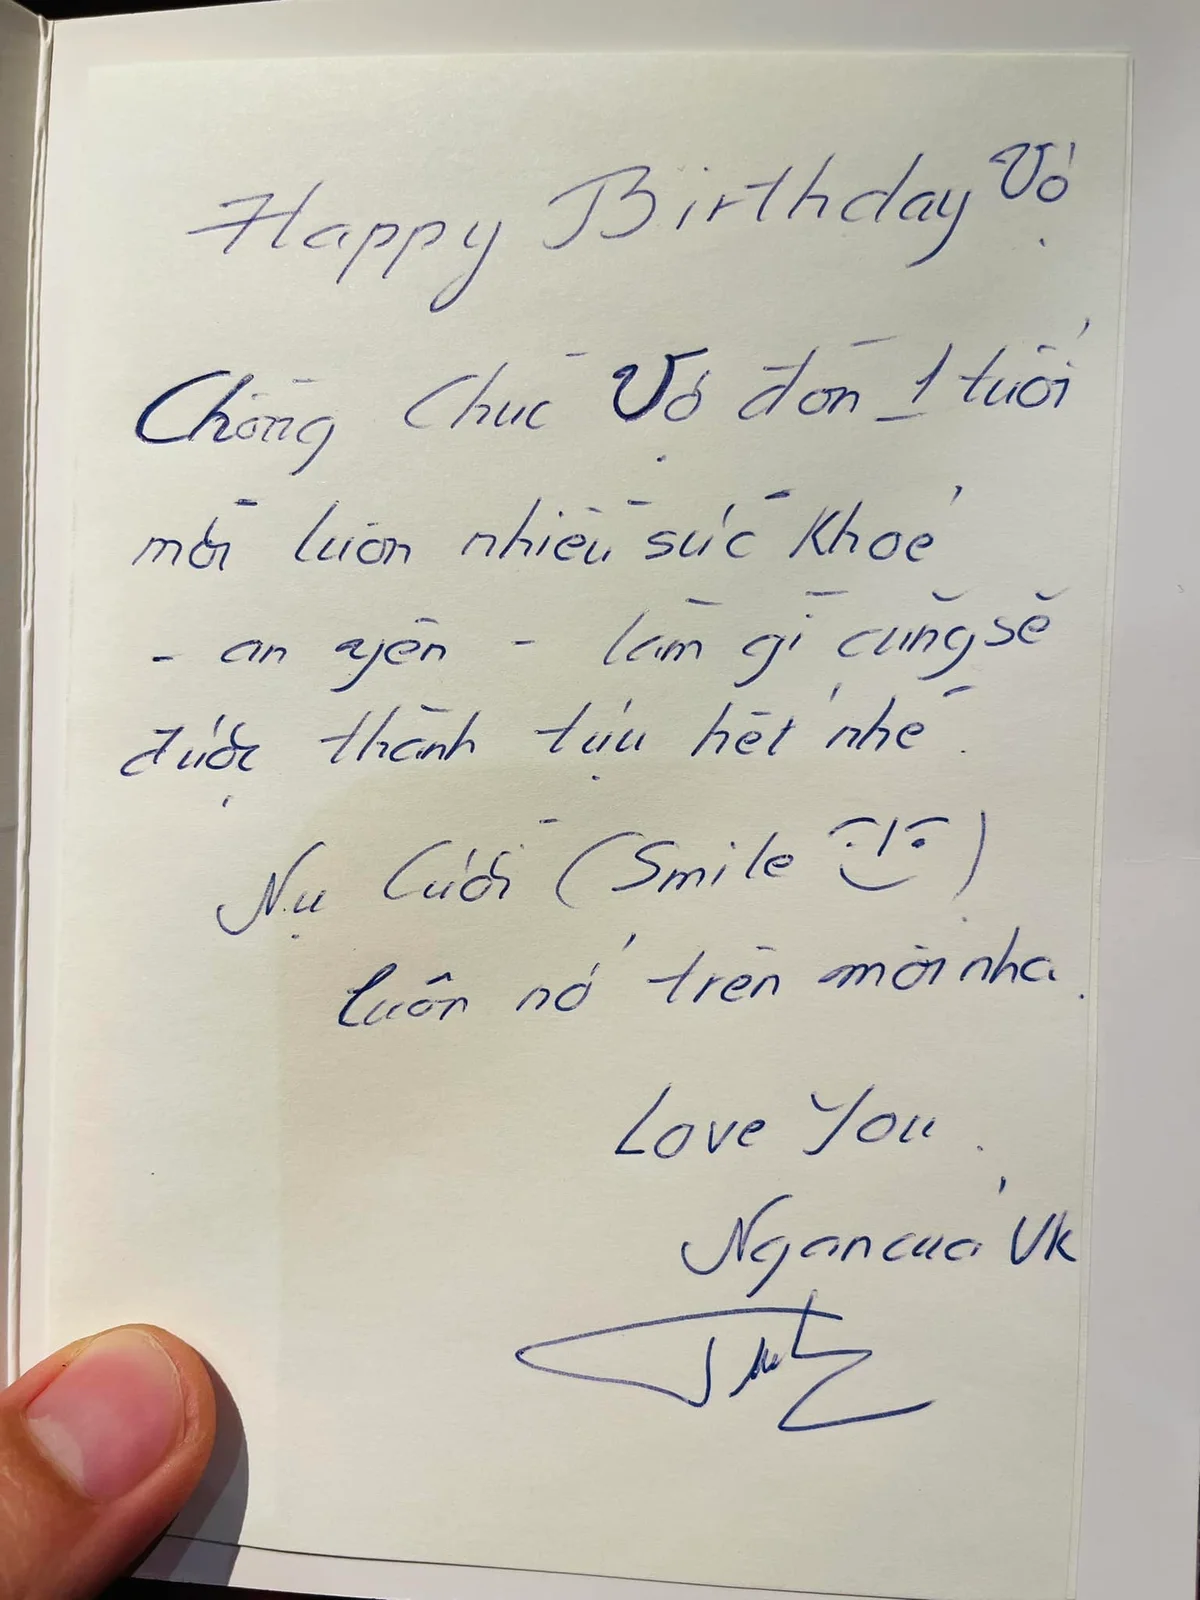 Happy Birthday Vợ
Chồng Chúc Vợ đón 1 tuổi
mới luôn nhiều sức khoẻ
- an yên - làm gì cũng sẽ
được thành tựu hết nhé.
Nụ Cười (Smile)
luôn nở trên môi nha.
Love You.
Ngan của Vk